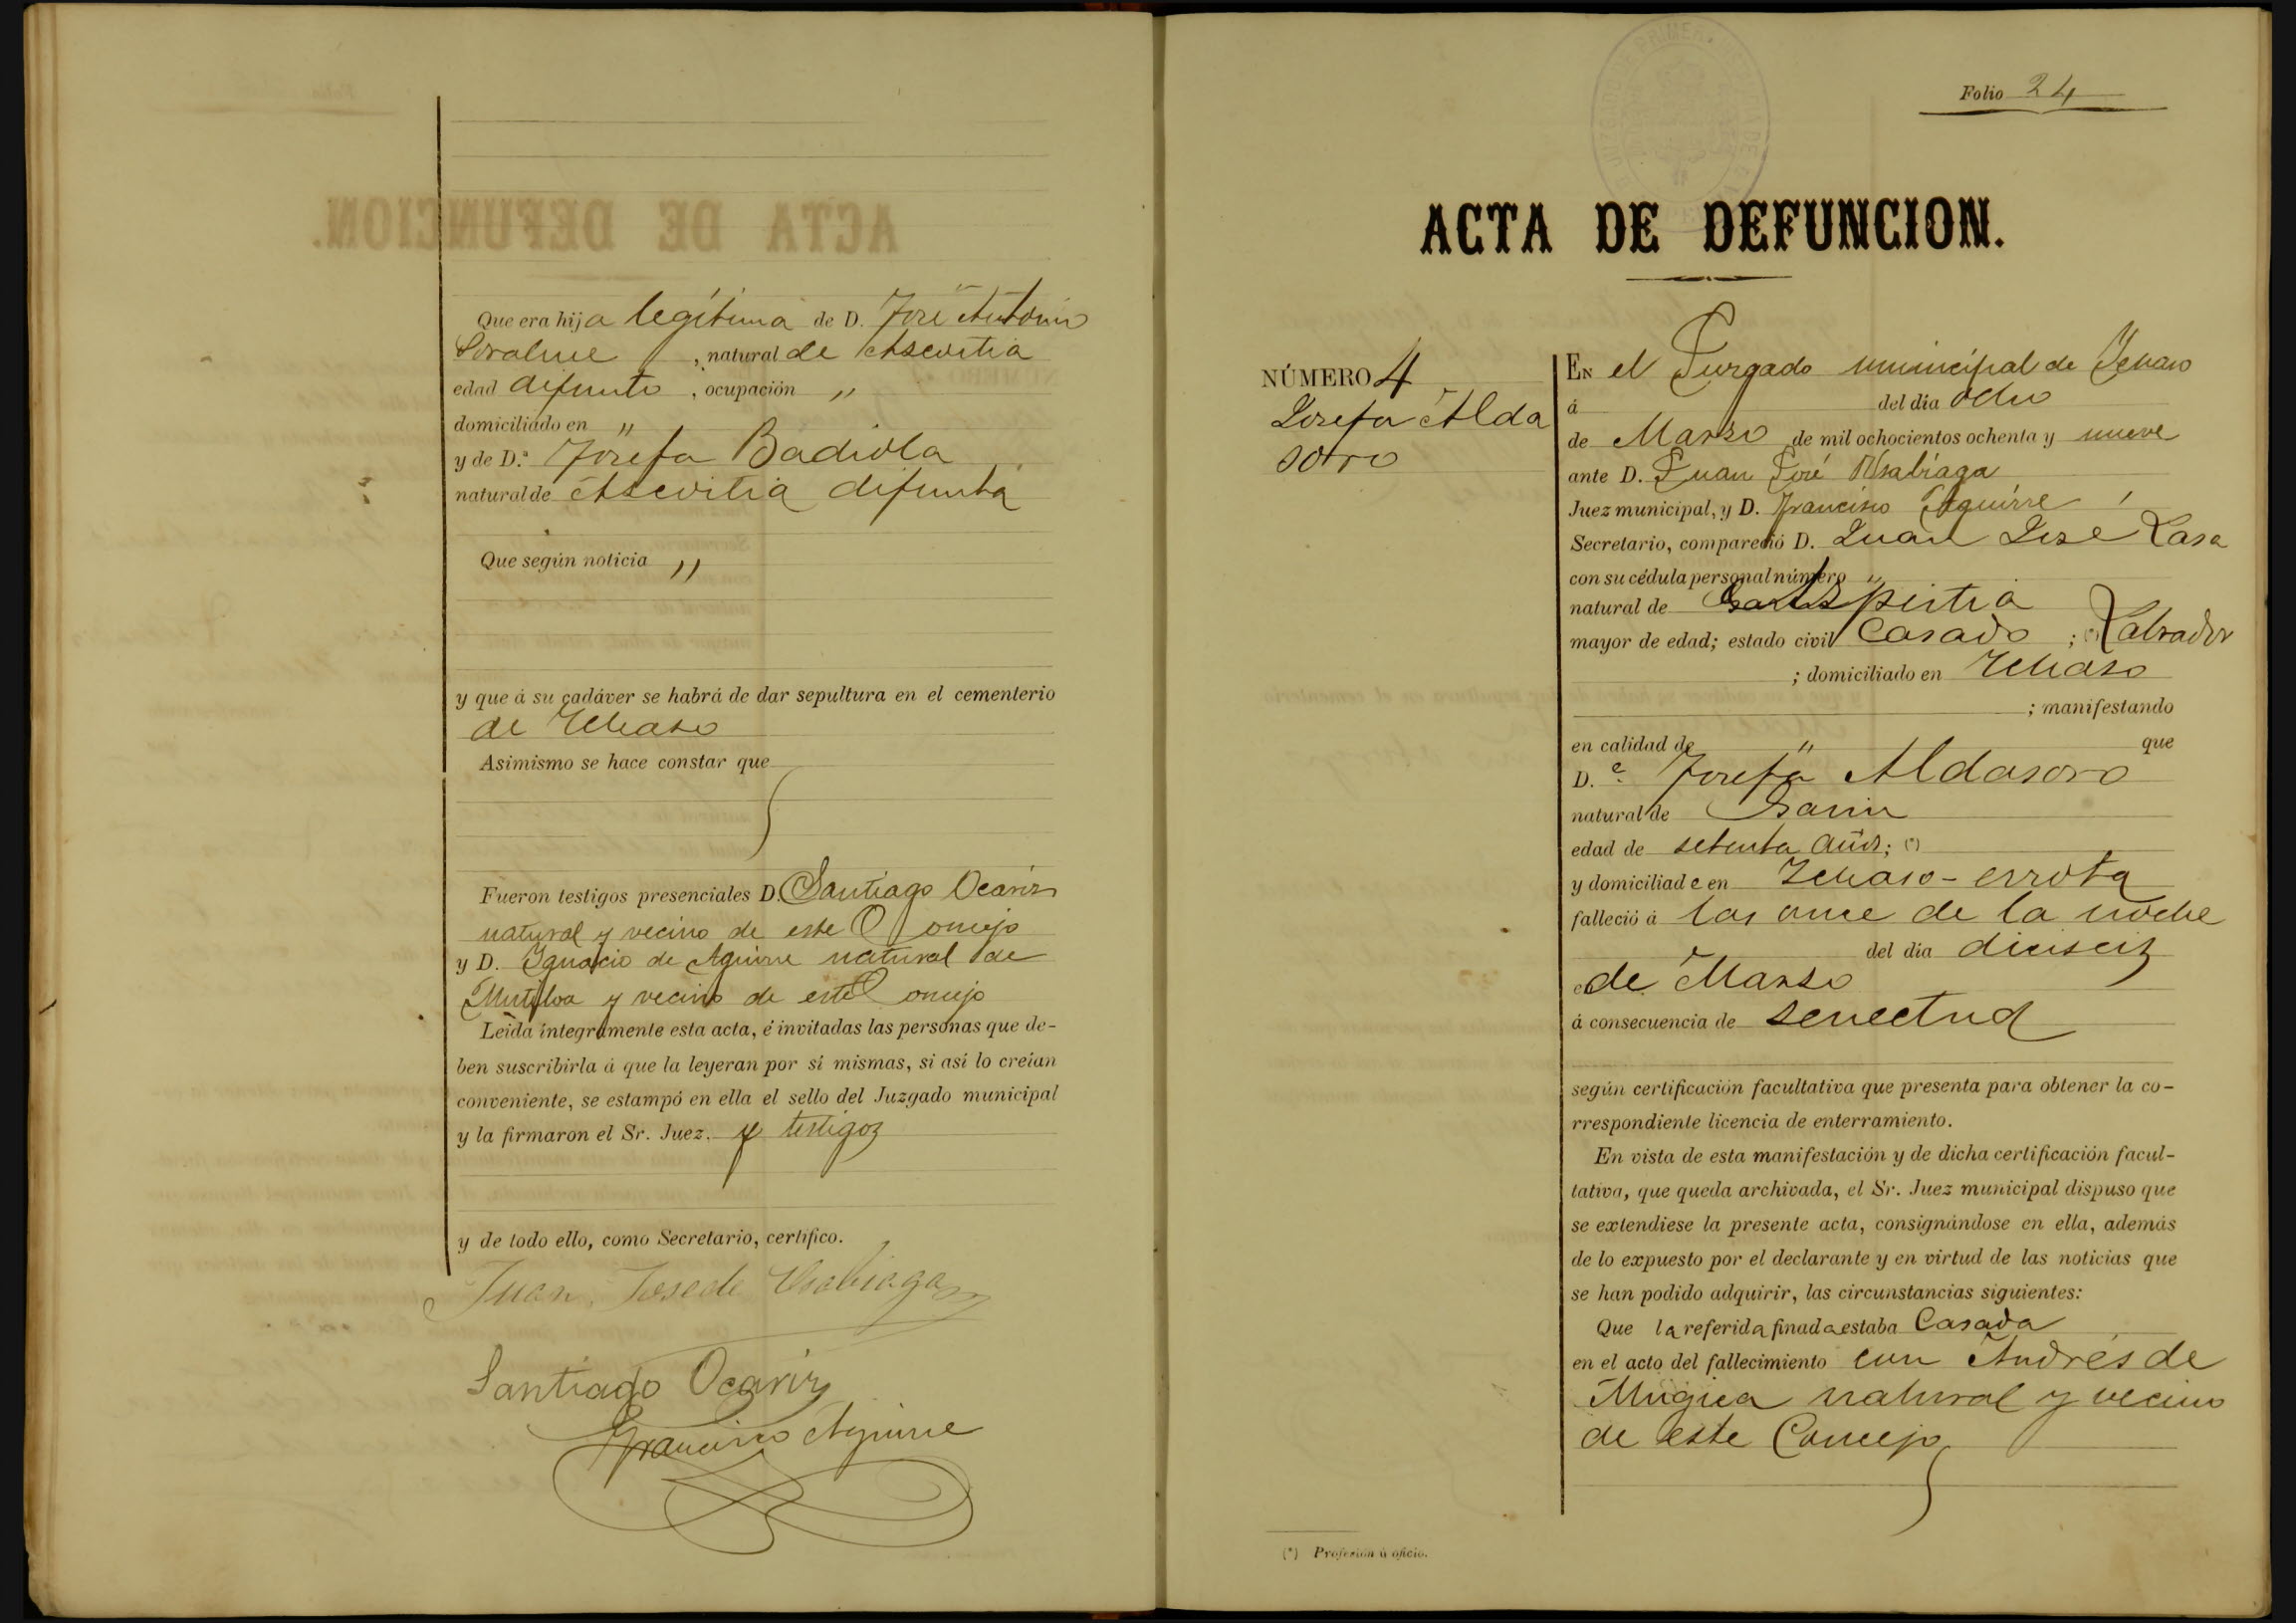 Que era hija legítima de D. José Antonio
Soraluce, natural de Ascoitia
edad difunto, ocupación "
domiciliado en "
y de D.ª Josefa Badiola
natural de Ascoitia difunta
Que según noticia "
y que á su cadáver se habrá de dar sepultura en el cementerio
de Ichaso
Asimismo se hace constar que
Fueron testigos presenciales D. Santiago Ocariz
natural y vecino de este Concejo
y D. Ignacio de Aguirre natural de
Mutiloa y vecino de este Concejo
Leída íntegramente esta acta, é invitadas las personas que de-
ben suscribirla á que la leyeran por sí mismas, si así lo creían
conveniente, se estampó en ella el sello del Juzgado municipal
y la firmaron el Sr. Juez. y testigos
y de todo ello, como Secretario, certifico.
Juan Jose de Usabiaga
Santiago Ocariz
Francisco Aguirre
Folio 24
ACTA DE DEFUNCION.
NÚMERO 4
Josefa Alda
soro
EN el Juzgado municipal de Ichaso
á del día ocho
de Marzo de mil ochocientos ochenta y nueve
ante D. Juan José Usabiaga
Juez municipal, y D. Francisco Aguirre
Secretario, compareció D. Juan José Lasa
con su cédula personal número "
natural de
mayor de edad; estado civil Casado; (*) Labrador
; domiciliado en Ichaso
; manifestando
en calidad de " que
D.ª Josefa Aldasoro
natural de Gavin
edad de setenta años; (*)
y domiciliada en Ichaso-errota
falleció á las once de la noche
del día dieciseis
de Marzo
á consecuencia de senectud
según certificación facultativa que presenta para obtener la co-
rrespondiente licencia de enterramiento.
En vista de esta manifestación y de dicha certificación facul-
tativa, que queda archivada, el Sr. Juez municipal dispuso que
se extendiese la presente acta, consignándose en ella, además
de lo expuesto por el declarante y en virtud de las noticias que
se han podido adquirir, las circunstancias siguientes:
Que la referida finada estaba Casada
en el acto del fallecimiento con Andrés de
Mugica natural y vecino
de este Concejo
(*) Profesión ú oficio.